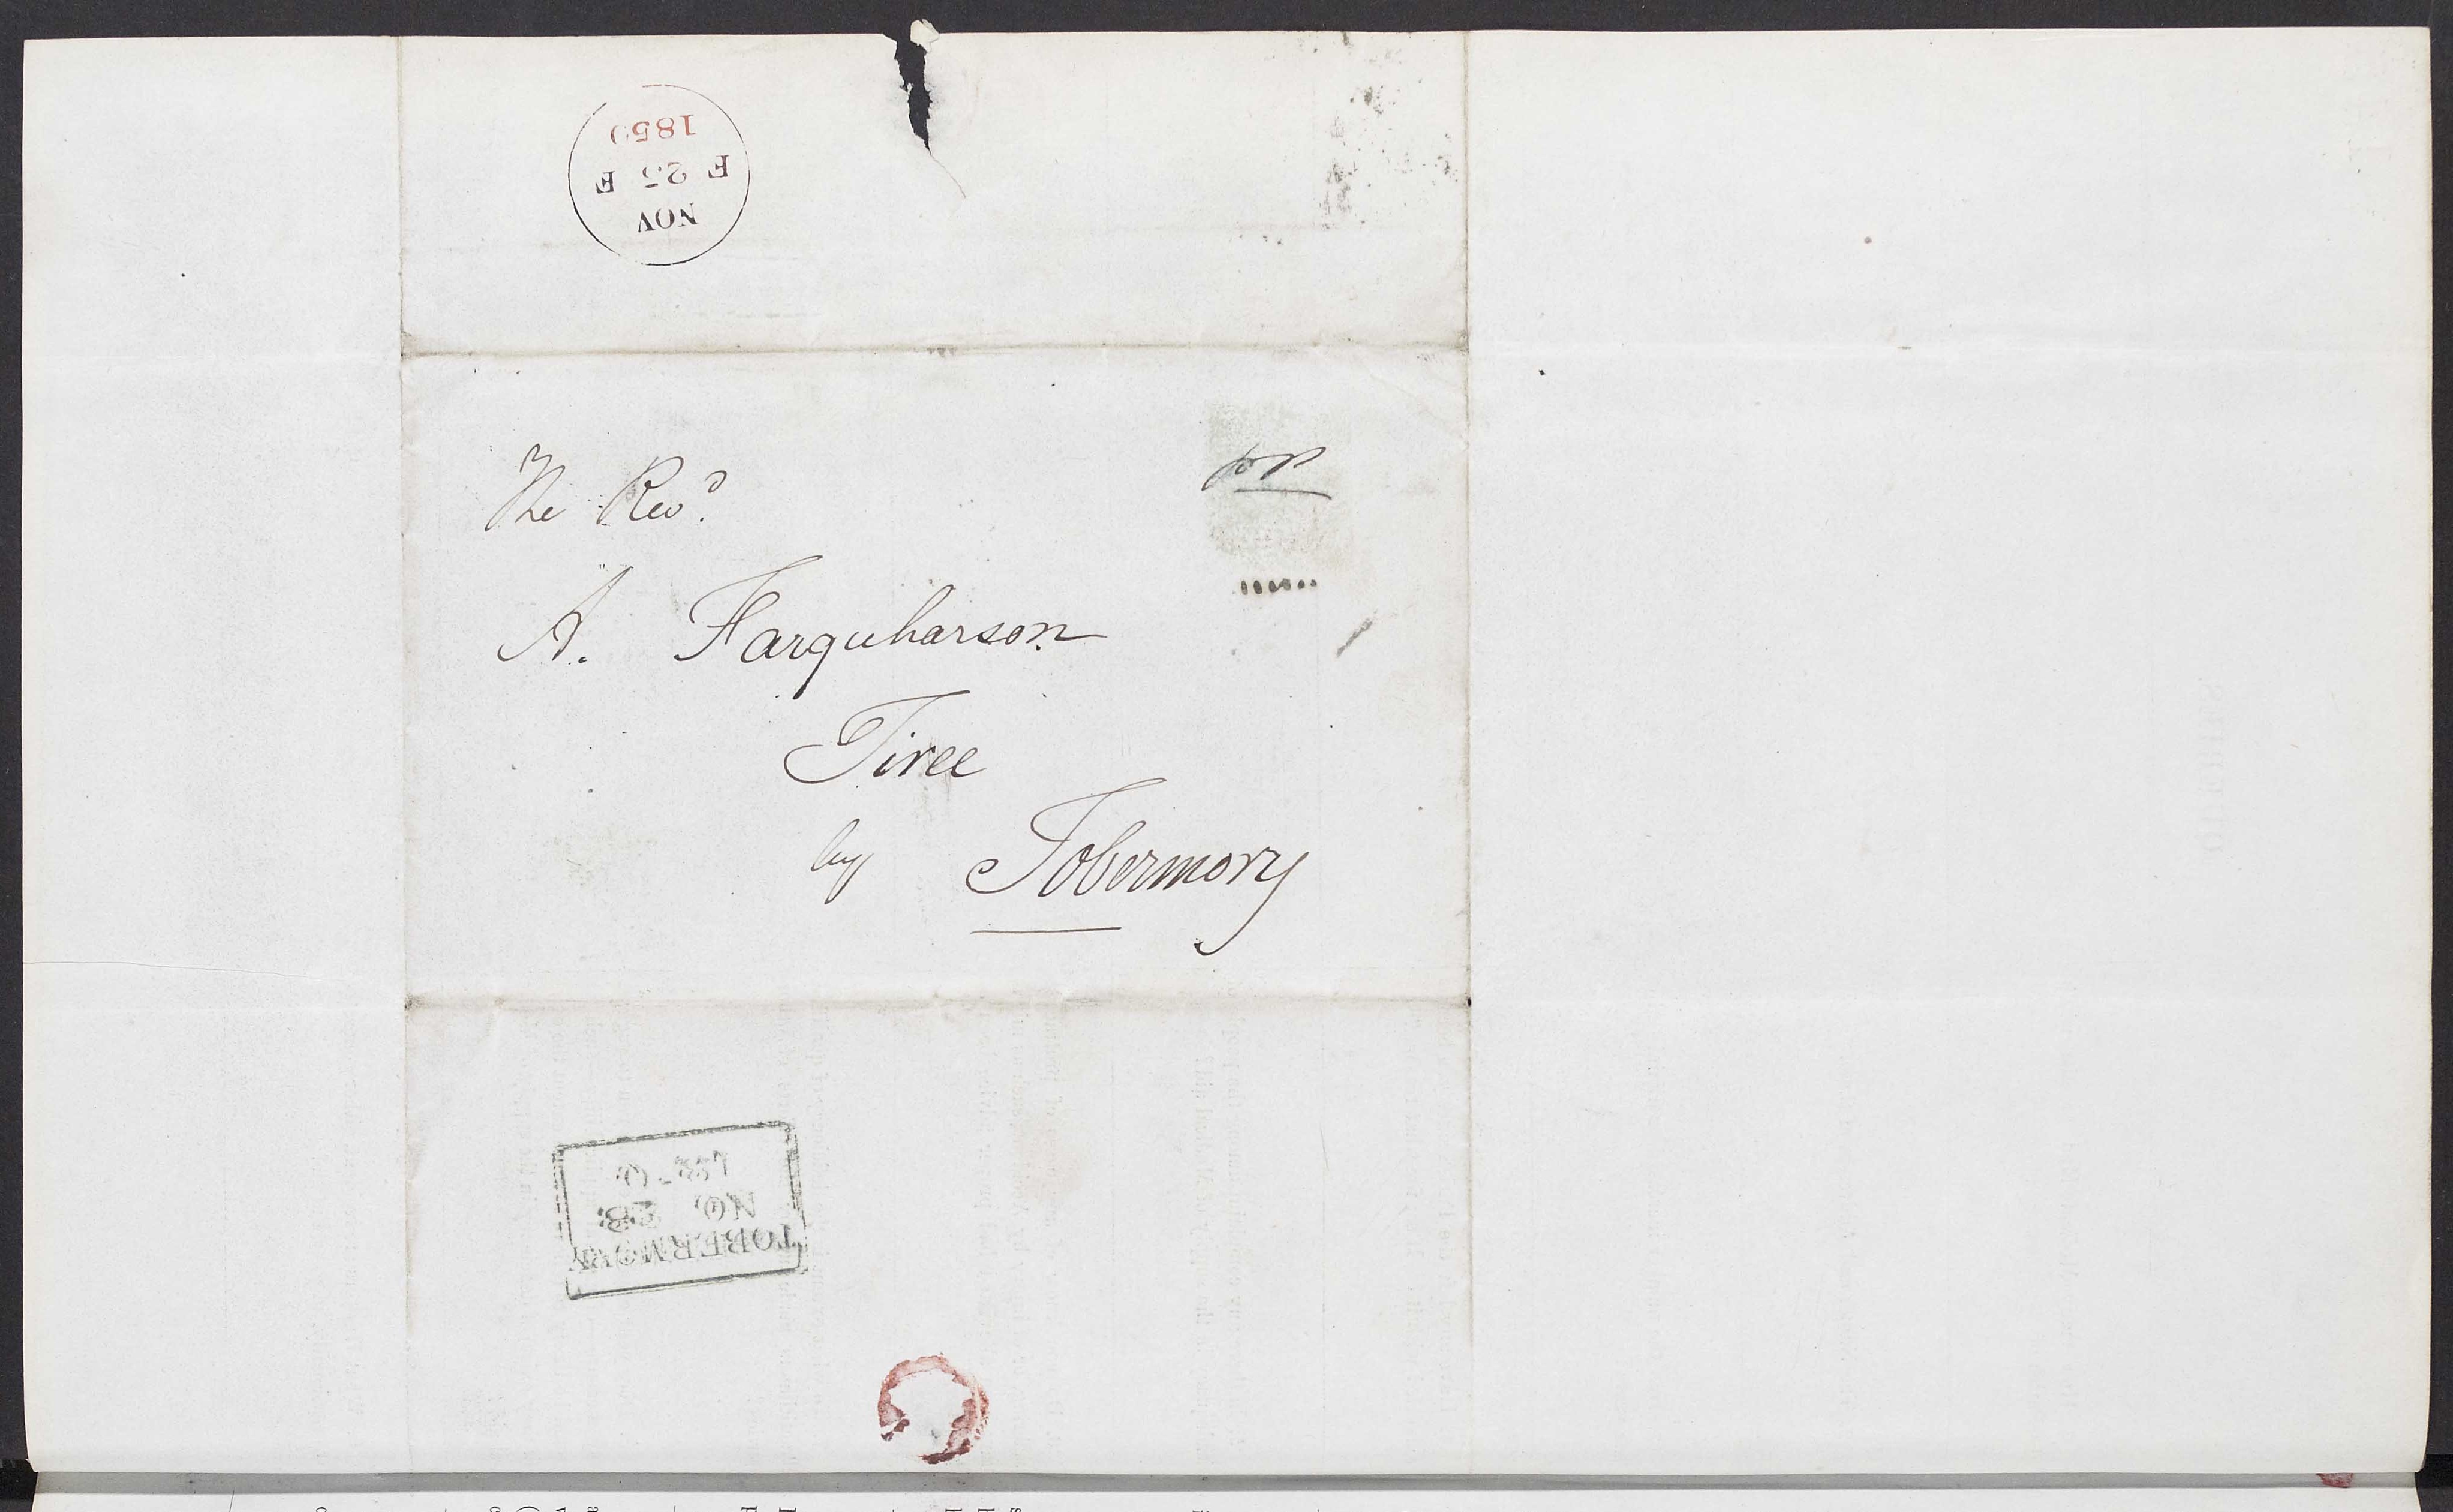 NOV
F 25 F
1850
pp
The Revd.
A. Farquharson
Tiree
by Tobermory
TOBERMORY
NO